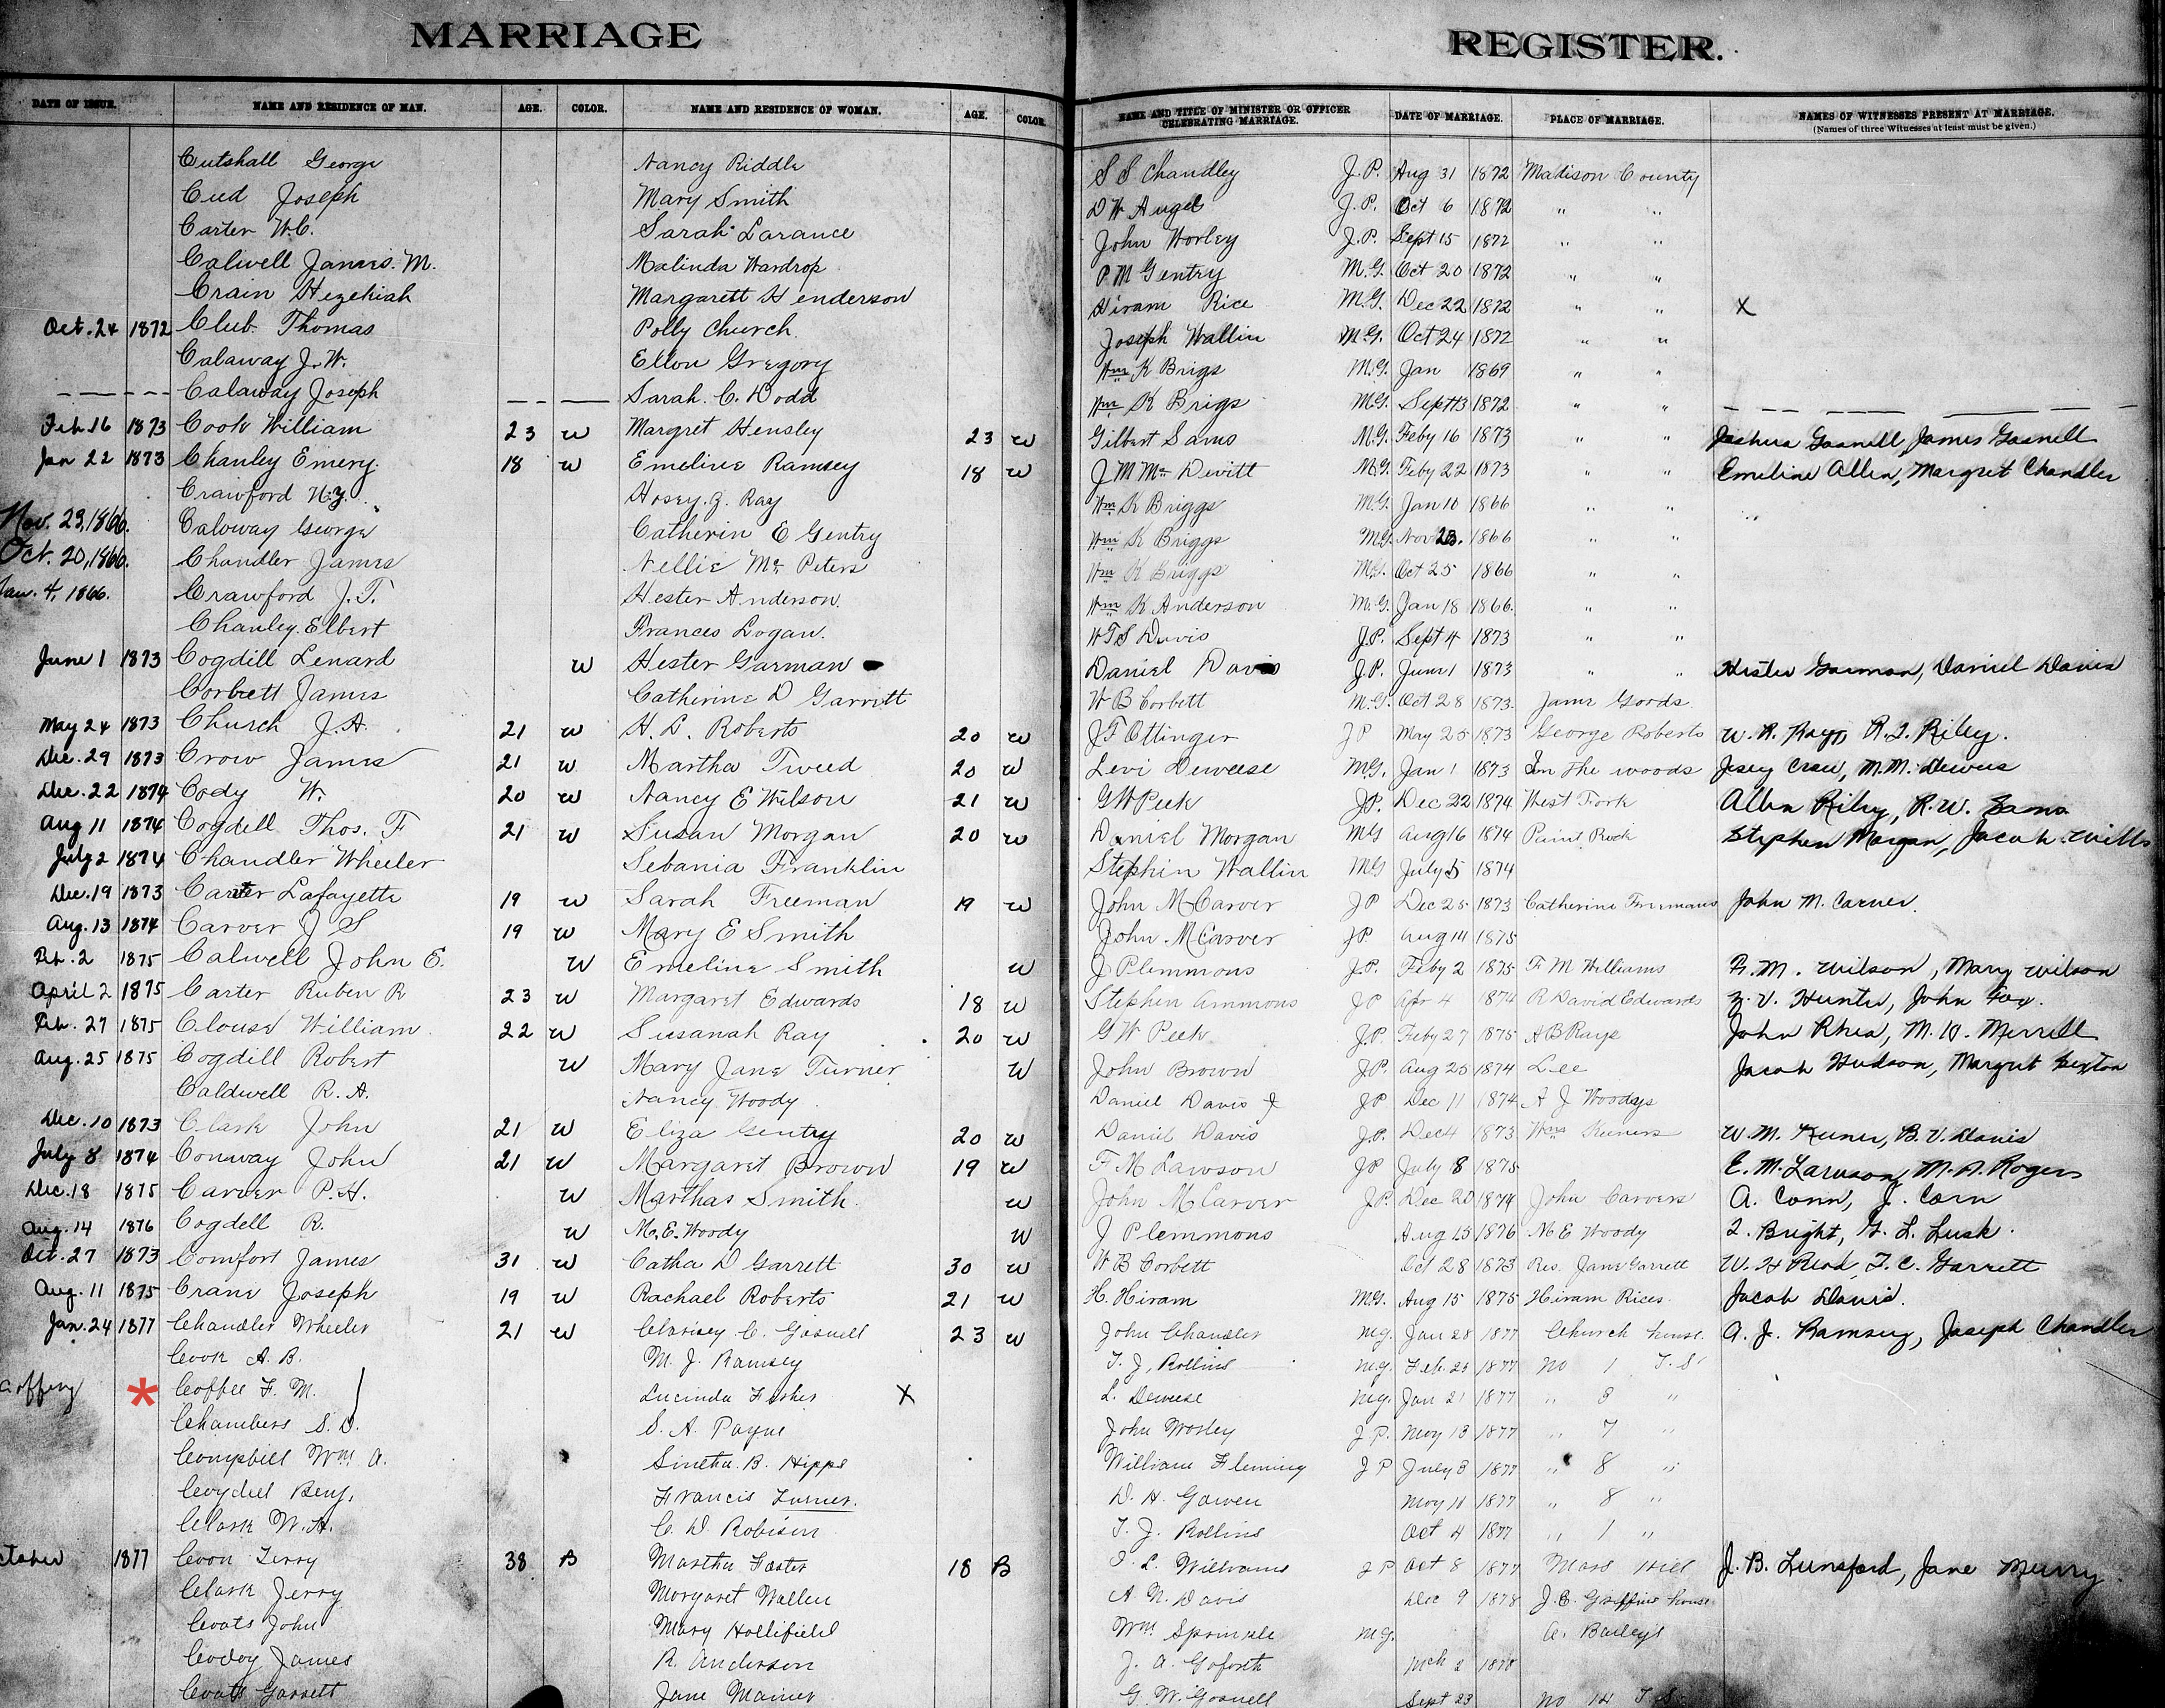 MARRIAGE REGISTER.
DATE OF ISSUE. NAME AND RESIDENCE OF MAN. AGE. COLOR. NAME AND RESIDENCE OF WOMAN. AGE. COLOR. NAME AND TITLE OF MINISTER OR OFFICER CELEBRATING MARRIAGE. DATE OF MARRIAGE. PLACE OF MARRIAGE. NAMES OF WITNESSES PRESENT AT MARRIAGE.
(Names of three Witnesses at least must be given.)
Cutshall George Nancy Riddle S S Chandley J.P. Aug 31 1872 Madison County
Cud Joseph Mary Smith D W Angel J.P. Oct 6 1872 " "
Carter W.C. Sarah Larance John Worley J.P. Sept 15 1872 " "
Calwell James. M. Malinda Wardrop P M Gentry M.G. Oct 20 1872 " "
Crain Hezekiah Margarett Henderson Hiram Rice M.G. Dec 22 1872 " " X
Oct. 24 1872 Club Thomas Polly Church Joseph Wallin M.G. Oct 24 1872 " "
Calaway J. W. Ellon Gregory Wm K Brigs M.G. Jan 1869 " "
Calaway Joseph Sarah. C. Dodd Wm K Brigs M.G. Sept 13 1872 " "
Feb. 16 1873 Cook William 23 W Margret Hensley 23 W Gilbert Sams M.G. Feby 16 1873 " " Joshua Gosnell, James Gosnell
Jan 22 1873 Chanley Emery 18 W Emeline Ramsey 18 W J M Mc Devitt M.G. Feby 22 1873 " " Emeline Allen, Margret Chandler
Crawford N.Z. Hosey. Z. Ray Wm K Briggs M.G. Jan 10 1866 " "
Nov. 23, 1866. Caloway George Catherin E Gentry Wm K Briggs M.G. Nov 23. 1866 " "
Oct. 20, 1866. Chandler James Nellie Mc Peters Wm K Briggs M.G. Oct 25 1866 " "
Jan. 4, 1866. Crawford J. T. Hester Anderson Wm K Anderson M.G. Jan 18 1866. " "
Chanley. Elbert Frances Logan. W T S Davis J.P. Sept 4 1873 " "
June 1 1873 Cogdill Lenard W Hester Garman Daniel Davis J.P. June 1 1873 " " Hester Garman, Daniel Davis
Corbett James Catherine D Garrett W B Corbett M.G. Oct 28 1873. Jame Goods
May 24 1873 Church J.A. 21 W H. L. Roberts 20 W J F Ottinger JP May 25 1873 George Roberts W. R. Kays, R. J. Riley.
Dec. 29 1873 Crow James 21 W Martha Tweed 20 W Levi Deweese M.G. Jan 1 1873 In The woods Jesey Crow, M.M. Dewees
Dec. 22 1874 Cody W. 20 W Nancy E Wilson 21 W G W Peek J.P. Dec 22 1874 West Fork Allen Riley, R. W. Sams
Aug 11 1874 Cogdell Thos. F 21 W Susan Morgan 20 W Daniel Morgan MG Aug 16 1874 Paint Rock Stephen Morgan, Jacob Wills
July 2 1874 Chandler Wheeler Sebania Franklin Stephin Wallin MG July 5 1874
Dec. 19 1873 Carter Lafayette 19 W Sarah Freeman 19 W John M Carver JP Dec 25 1873 Catherine Freemans John M. Carver.
Aug. 13 1874 Carver J S 19 W Mary E Smith John M Carver JP Aug 14 1875
Feb. 2 1875 Calwell John E. W Emeline Smith W J Plemmons J.P. Feby 2 1875 F M Williams R. M. Wilson, Mary Wilson
April 2 1875 Carter Ruben R 23 W Margaret Edwards 18 W Stephen Ammons JP Apr 4 1874 R David Edwards Z. V. Hunter, John Fox.
Feb. 27 1875 Clouse William 22 W Susanah Ray 20 W G W Peek J.P. Feby 27 1875 A B Rays John Rhea, M. W. Merrell
Aug. 25 1875 Cogdill Robert W Mary Jane Turner W John Brown J.P. Aug 25 1874 Lee Jacob Hudson, Margret Sexton
Caldwell R. A. Nancy Woody Daniel Davis J JP Dec 11 1874 A J Woodys
Dec. 10 1873 Clark John 21 W Eliza Gentry 20 W Daniel Davis J.P. Dec 4 1873 Wms Keeners W. M. Keener, B. V. Davis
July 8 1874 Conway John 21 W Margaret Brown 19 W F M Lawson JP July 8 1875 E. M. Lawson, M. A. Rogers
Dec. 18 1875 Carver P. H. W Marthas Smith W John M Carver J.P. Dec 20 1874 John Carvers A. Conn, J. Corn
Aug. 14 1876 Cogdell R. W M. E. Woody W J Plemmons Aug 15 1876 M E Woody I. Bright, G. L. Lusk.
Oct. 27 1873 Comfort James 31 W Catha D Garrett 30 W W B Corbett Oct 28 1873 Res. Jane Garrett W. H. Read, T. C. Garrett
Aug. 11 1875 Crane Joseph 19 W Rachael Roberts 21 W H. Hiram M.G. Aug 15 1875 Hiram Rices Jacob Davis.
Jan. 24 1877 Chandler Wheeler 21 W Clarisey C. Gosnell 23 W John Chandler M.G. Jan 28 1877 Church house. A. J. Ramsey, Joseph Chandler
Cook A. B. M. J. Ramsey T. J. Rollins M.G. Feb. 25 1877 No 1 T. S.
* Coffee F. M. Lucinda Fisher X L. Deweese M.G. Jan 21 1877 " 3 "
Chambers S. D. S. A. Payne John Worley J P. May 13 1877 " 7 "
Campbell Wm A. Sintha. B. Hipps William Fleming J P July 3 1877 " 8 "
Cogdill Benj. Francis Turner. D. H. Gowen May 10 1877 " 8 "
Clark W. H. C. D. Robison T. J. Rollins Oct 4 1877 " 1 "
October 1877 Coon Terry 38 B Martha Foster 18 B I. L. Williams J P Oct 8 1877 Mars Hill J. B. Lunsford, Jane Murry
Clark Jerry Margaret Wallen A. N. Davis Dec 9 1878 J. E. Griffins house
Coats John Mary Hollifield Wm Sprinkle M.G. A. Baileys
Codoy James R. Anderson J. A. Goforth Mch 2 1878
Coats Garrett Jane Mainer G. W. Gosnell Sept 23 No 14 T S.